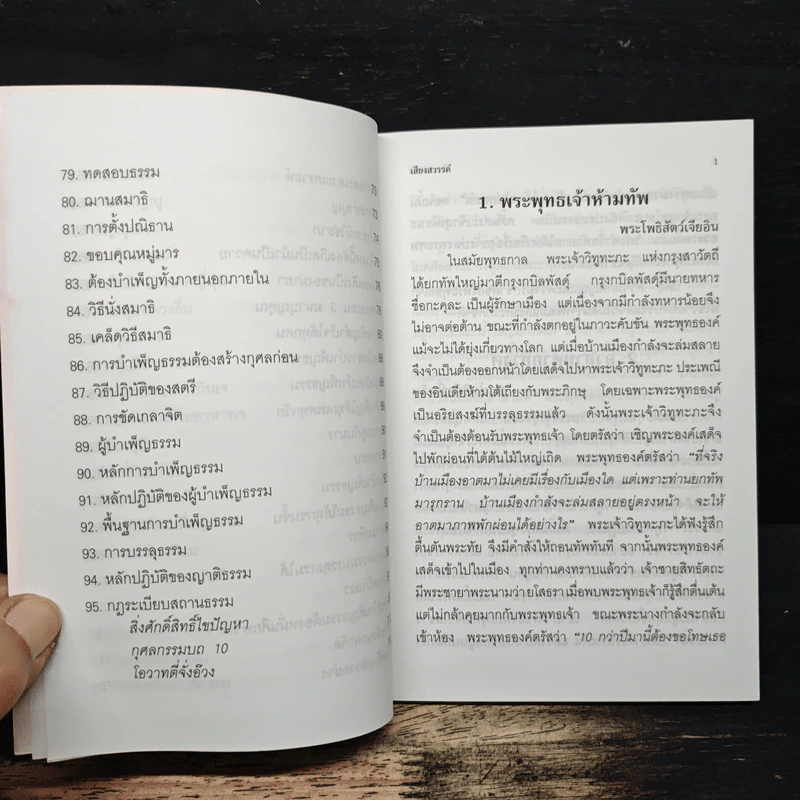 79. ทดสอบธรรม
80. ฌานสมาธิ
81. การตั้งปณิธาน
82. ขอบคุณหมู่มาร
83. ต้องบำเพ็ญทั้งภายนอกภายใน
84. วิธีนั่งสมาธิ
85. เคล็ดวิธีสมาธิ
86. การบำเพ็ญธรรมต้องสร้างกุศลก่อน
87. วิธีปฏิบัติของสตรี
88. การขัดเกลาจิต
89. ผู้บำเพ็ญธรรม
90. หลักการบำเพ็ญธรรม
91. หลักปฏิบัติของผู้บำเพ็ญธรรม
92. พื้นฐานการบำเพ็ญธรรม
93. การบรรลุธรรม
94. หลักปฏิบัติของญาติธรรม
95. กฎระเบียบสถานธรรม
สิ่งศักดิ์สิทธิ์ไขปัญหา
กุศลกรรมบถ 10
โอวาทตี่จั่งอ๊วง
เสียงสวรรค์ 1
1. พระพุทธเจ้าห้ามทัพ
พระโพธิสัตว์เจียอิน
ในสมัยพุทธกาล พระเจ้าวิทูทะภะ แห่งกรุงสาวัตถี
ได้ยกทัพใหญ่มาตีกรุงกบิลพัสดุ์ กรุงกบิลพัสดุ์มีนายทหาร
ชื่อกะคุละ เป็นผู้รักษาเมือง แต่เนื่องจากมีกำลังทหารน้อยจึง
ไม่อาจต่อต้าน ขณะที่กำลังตกอยู่ในภาวะคับขัน พระพุทธองค์
แม้จะไม่ได้ยุ่งเกี่ยวทางโลก แต่เมื่อบ้านเมืองกำลังจะล่มสลาย
จึงจำเป็นต้องออกหน้าโดยเสด็จไปหาพระเจ้าวิทูทะภะ ประเพณี
ของอินเดียห้ามโต้เถียงกับพระภิกษุ โดยเฉพาะพระพุทธองค์
เป็นอริยสงฆ์ที่บรรลุธรรมแล้ว ดังนั้นพระเจ้าวิทูทะภะจึง
จำเป็นต้องต้อนรับพระพุทธเจ้า โดยตรัสว่า เชิญพระองค์เสด็จ
ไปพักผ่อนที่ใต้ต้นไม้ใหญ่เถิด พระพุทธองค์ตรัสว่า "ที่จริง
บ้านเมืองอาตมาไม่เคยมีเรื่องกับเมืองใด แต่เพราะท่านยกทัพ
มารุกราน บ้านเมืองกำลังจะล่มสลายอยู่ตรงหน้า จะให้
อาตมาภาพพักผ่อนได้อย่างไร" พระเจ้าวิทูทะภะได้ฟังรู้สึก
ตื้นตันพระทัย จึงมีคำสั่งให้ถอนทัพทันที จากนั้นพระพุทธองค์
เสด็จเข้าไปในเมือง ทุกท่านคงทราบแล้วว่า เจ้าชายสิทธัตถะ
มีพระชายาพระนามว่ายโสธรา เมื่อพบพระพุทธเจ้าก็รู้สึกตื่นเต้น
แต่ไม่กล้าคุยมากกับพระพุทธเจ้า ขณะพระนางกำลังจะกลับ
เข้าห้อง พระพุทธองค์ตรัสว่า "10 กว่าปีมานี้ต้องขอโทษเธอ